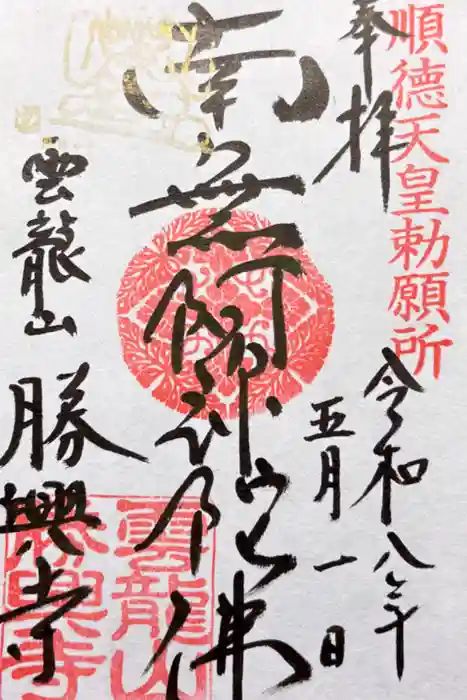 順徳天皇勅願所
奉拝
令和八年
五月一日
南無阿弥陀佛
雲龍山
勝興寺
雲龍山
勝興寺